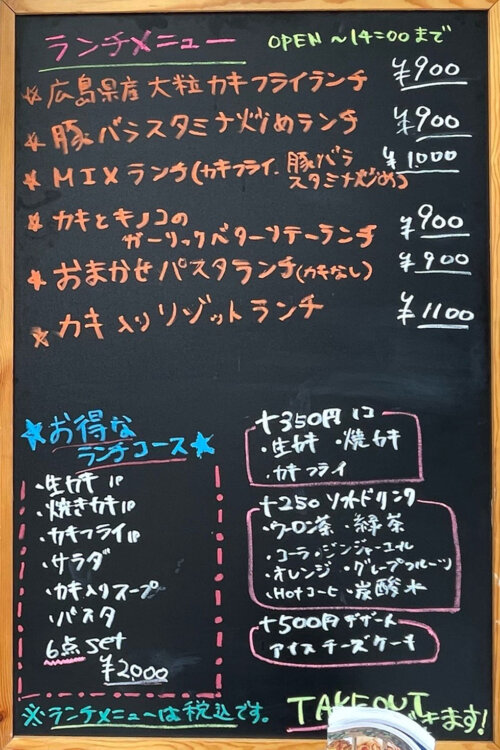 ランチメニュー OPEN ～14:00まで
☆広島県産 大粒カキフライランチ ¥900
☆豚バラスタミナ炒めランチ ¥900
☆MIXランチ(カキフライ・豚バラスタミナ炒め) ¥1000
☆カキとキノコの
ガーリックバターソテーランチ ¥900
☆おまかせパスタランチ(カキなし) ¥900
☆カキ入りリゾットランチ ¥1100
☆お得な
ランチコース☆
・生カキ1P
・焼きカキ1P
・カキフライ1P
・サラダ
・カキ入りスープ
・パスタ
6点set
¥2,000
+350円 1コ
・生カキ ・焼カキ
・カキフライ
+250 ソフトドリンク
・ウーロン茶 ・緑茶
・コーラ・ジンジャーエール
・オレンジ ・グレープフルーツ
・Hotコーヒー ・炭酸水
+500円 デザート
アイスチーズケーキ
※ランチメニューは税込です。
TAKEOUT
できます!